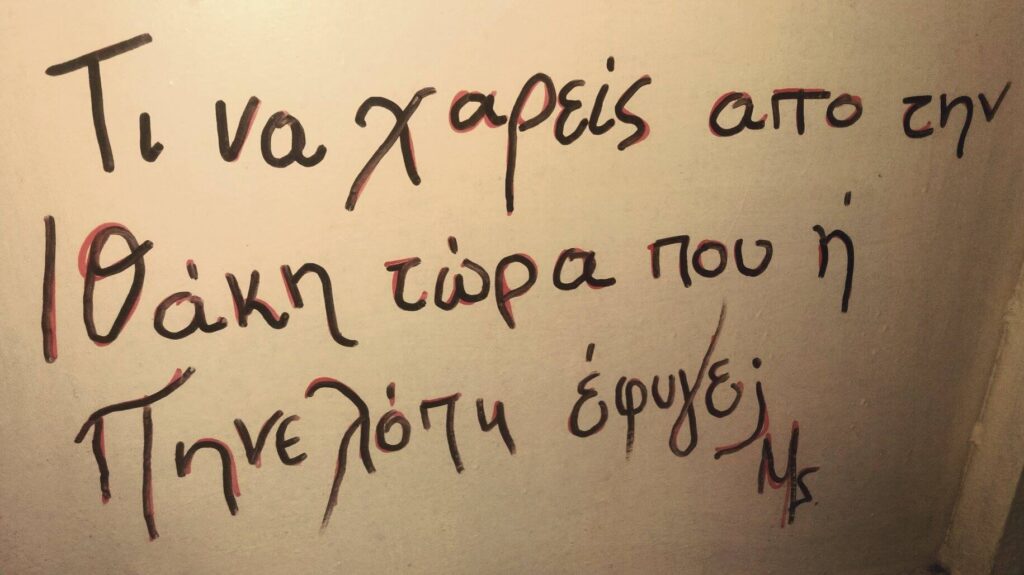 Τι να χαρείς απο την
Ιθάκη τώρα που ή
Πηνελόπη έφυγε;
Ms.